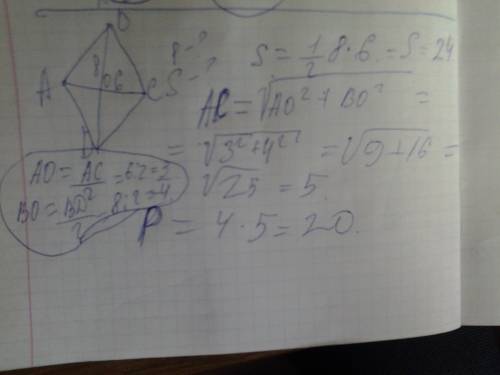 B
8-?
S-?
A
8
O
6
C
D
S = 1/2 8·6 = S = 24
AC = √AO² + BO² =
= √3²+4² = √9+16 =
√25 = 5
AO = AC/2 = 6:2=2
BO = BD/2 8:2=4
P = 4·5 = 20.